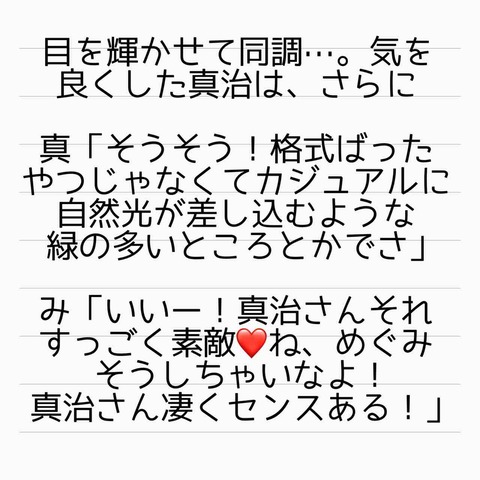 目を輝かせて同調…。気を
良くした真治は、さらに
真「そうそう！格式ばった
やつじゃなくてカジュアルに
自然光が差し込むような
緑の多いところとかでさ」
み「いいー！真治さんそれ
すっごく素敵❤️ね、めぐみ
そうしちゃいなよ！
真治さん凄くセンスある！」